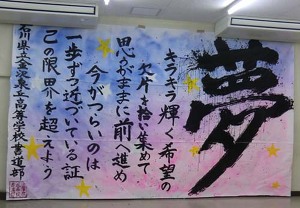 夢
キラキラ輝く希望の
欠片を拾い集めて
思うがままに前へ進め
今がつらいのは
一歩ずつ近づいている証
己の限界を超えよう
石川県立金沢泉丘高等学校書道部